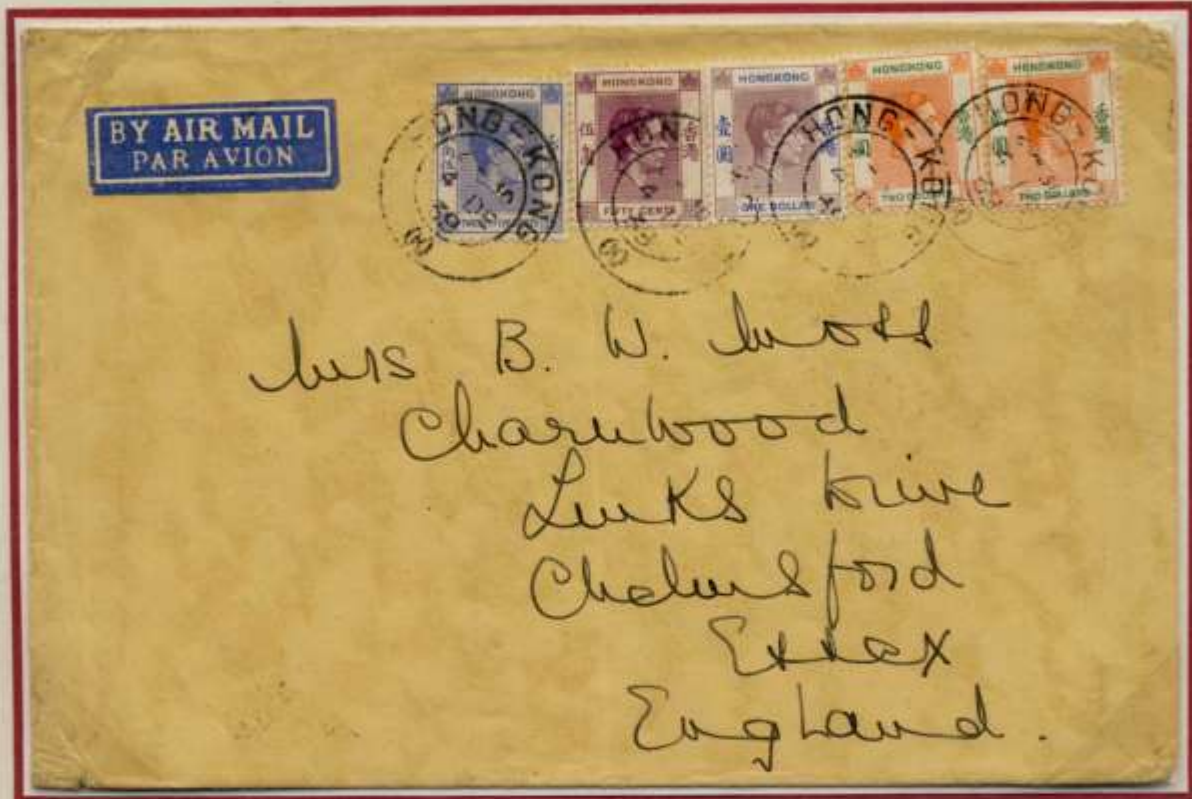 BY AIR MAIL
PAR AVION
HONGKONG
HONGKONG
伍 香港
FIFTY CENTS
HONGKONG
壹圓
ONE DOLLAR
HONGKONG
圓 香港
TWO
HONGKONG
圓 香港
TWO DOLLARS
HONG-KONG
HONG-KONG
HONG-KO
Mrs B. W. Moss
Charnwood
Links Drive
Chelmsford
Essex
England.